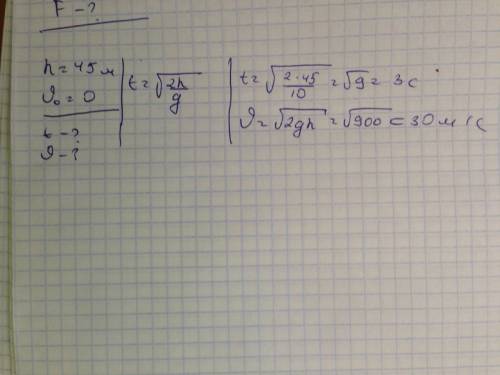 F - ?
h = 45 м
ϑ₀ = 0
t - ?
ϑ - ?
t = √(2h/g)
t = √(2·45/10) = √9 = 3 с
ϑ = √(2gh) = √900 = 30 м/с